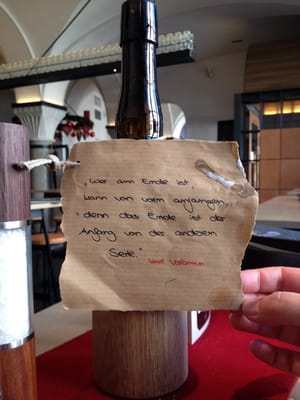 „Wer am Ende ist,
kann von vorn anfangen,
denn das Ende ist der
Anfang von der anderen
Seite."
Karl Valentin